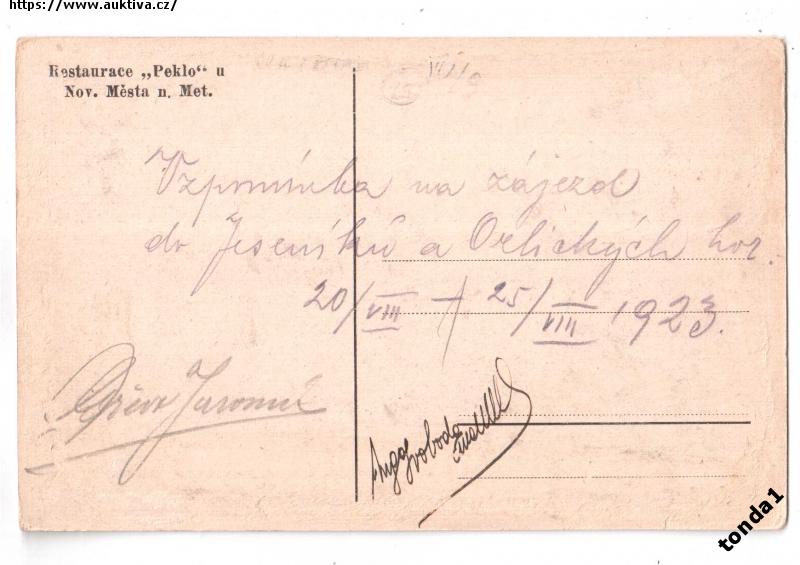 https://www.auktiva.cz/
Restaurace „Peklo“ u
Nov. Města n. Met.
VII/9
Vzpomínka na zájezd
do Jeseníků a Orlických hor.
20/VIII + 25/VIII 1923.
Jaromír
Svoboda
tonda1